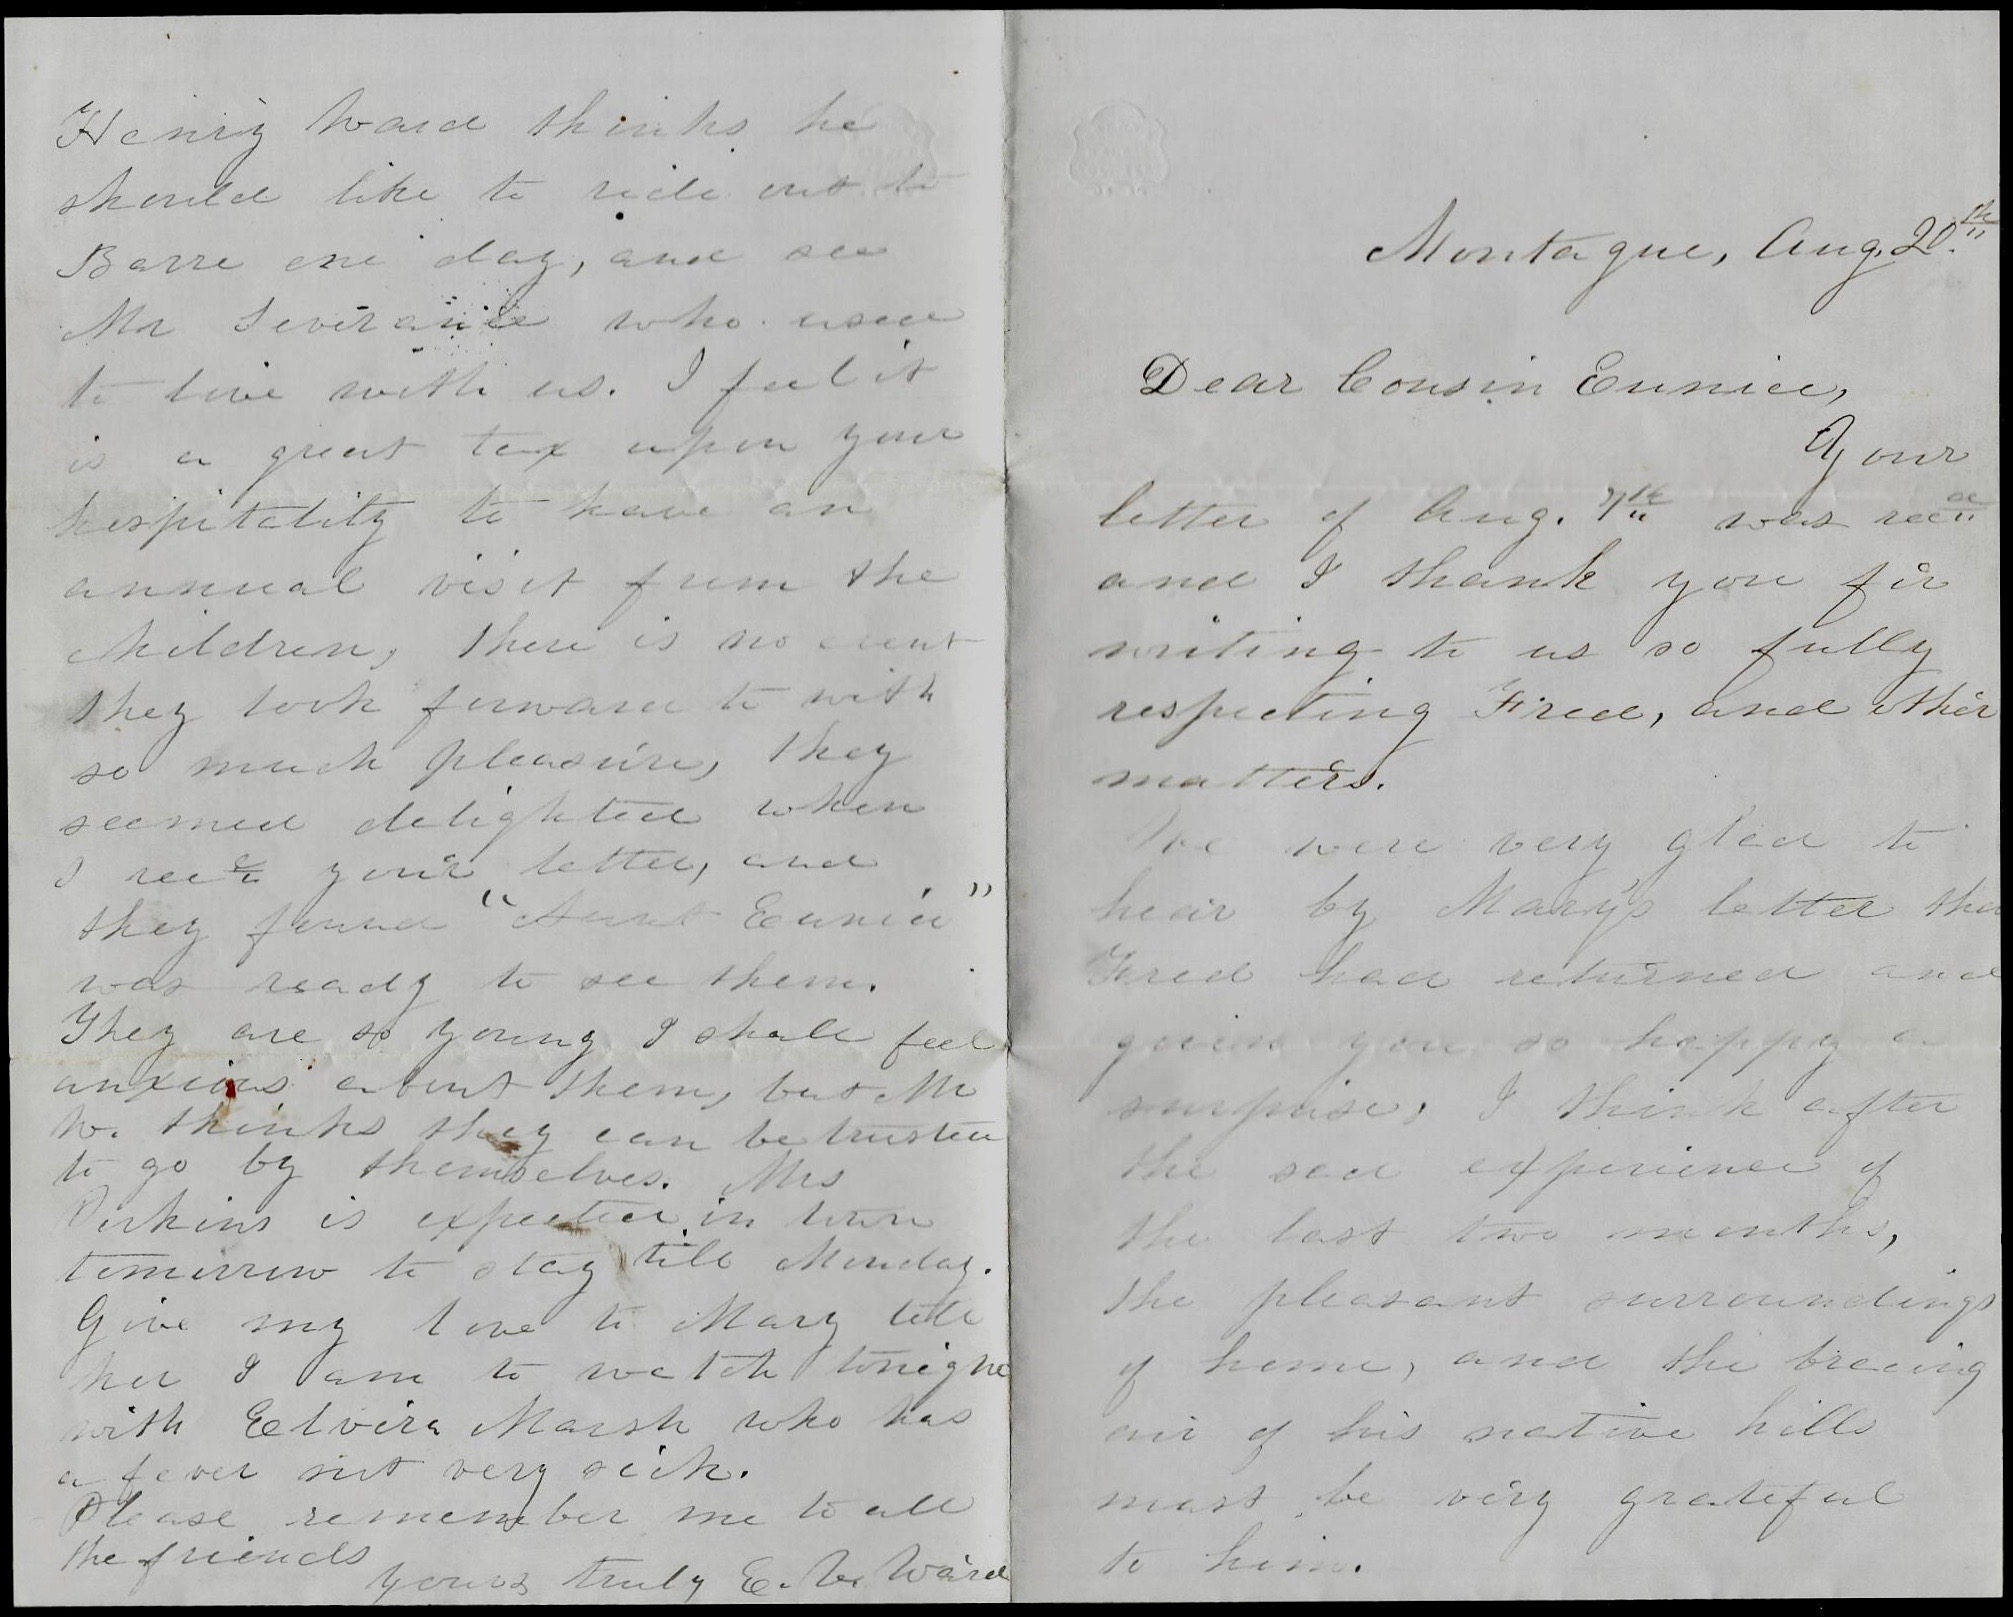 Montague, Aug. 20th
Dear Cousin Eunice,
Your
letter of Aug. 7th was recd
and I thank you for
writing to us so fully
respecting Fred, and other
matters.
We were very glad to
hear by Mary's letter tha
Fred had returned and
given you so happy a
surprise, I think after
the sad experience of
the last two months,
the pleasant surroundings
of home, and the bracing
air of his native hills
must be very grateful
to him.
Henry Ward thinks he
should like to ride out to
Barre one day, and see
Mr Severance who used
to live with us. I feel it
is a great tax upon your
hospitality to have an
annual visit from the
children, there is no event
they look forward to with
so much pleasure, they
seemed delighted when
I recd your letter, and
they found "Aunt Eunice"
was ready to see them.
They are so young I shall feel
anxious about them, but Mr
W. thinks they can be trusted
to go by themselves. Mrs
Perkins is expected in town
tomorrow to stay till Monday.
Give my love to Mary tell
her I am to watch tonight
with Elvira Marsh who has
a fever not very sick.
Please remember me to all
the friends
Yours truly E. V. Ward